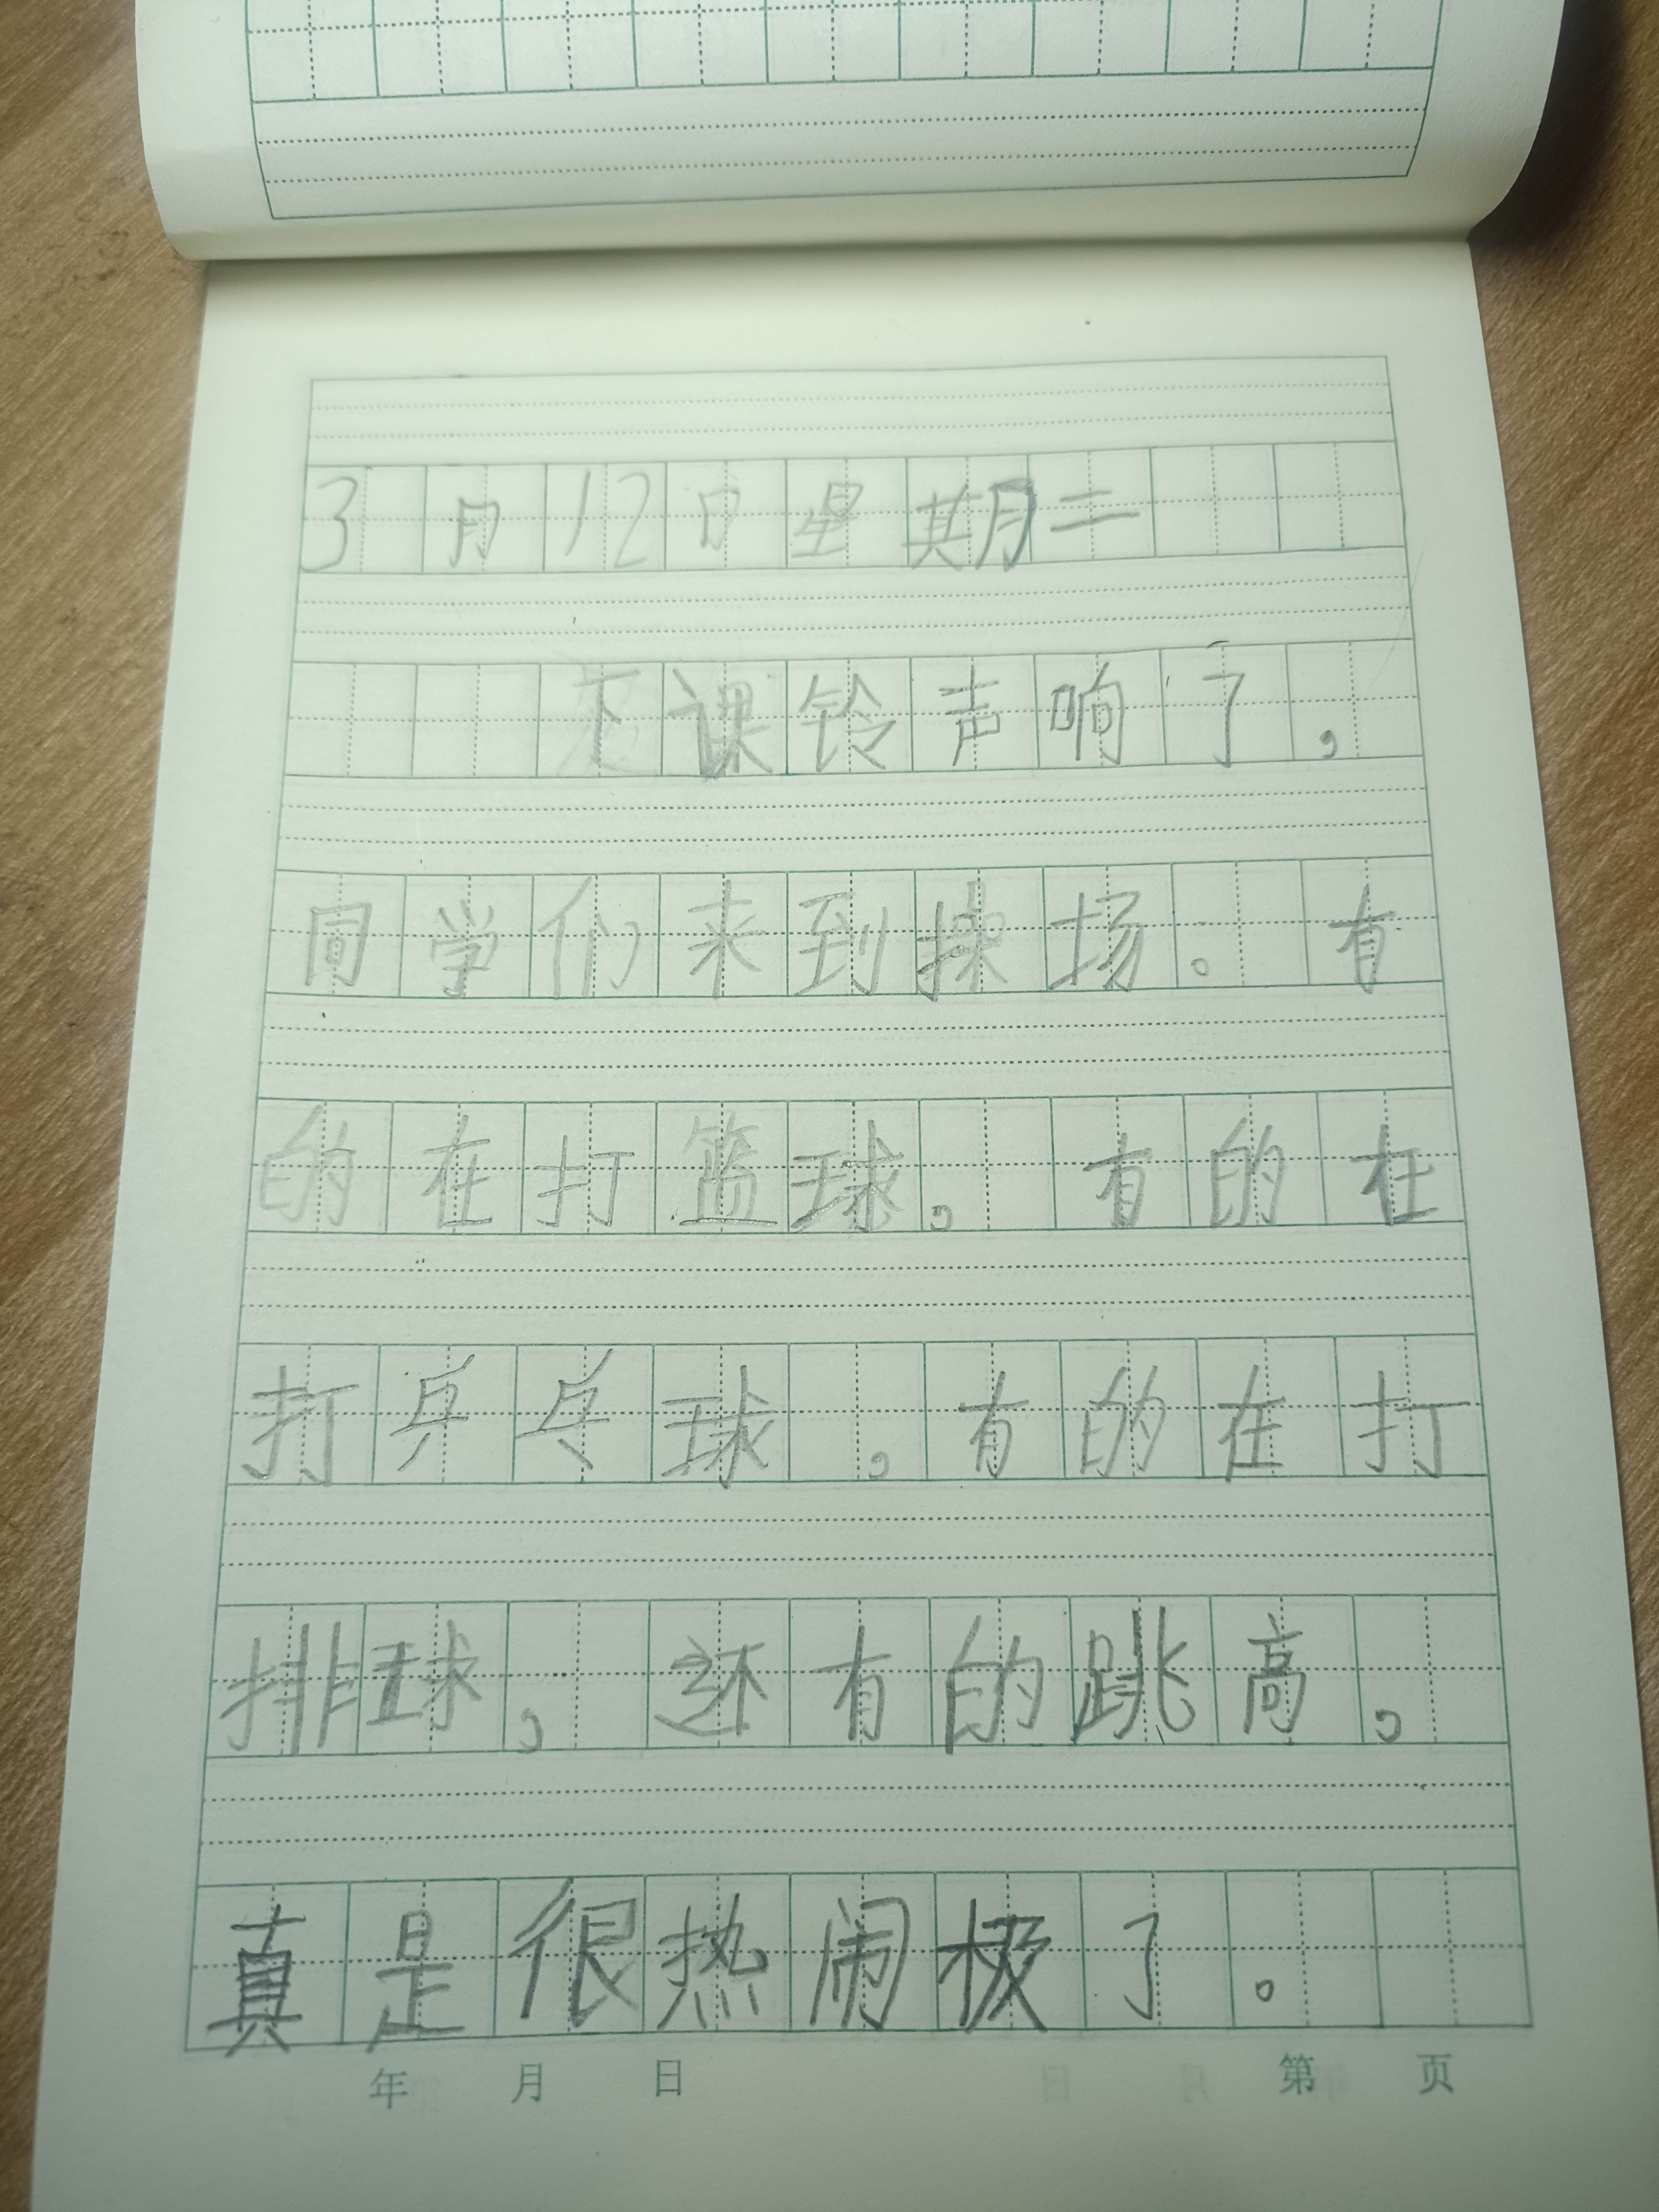 3月12日星期二
下课铃声响了，
同学们来到操场。有
的在打篮球，有的在
打乒乓球，有的在打
排球，还有的跳高，
真是很热闹极了。
年 月 日 第 页